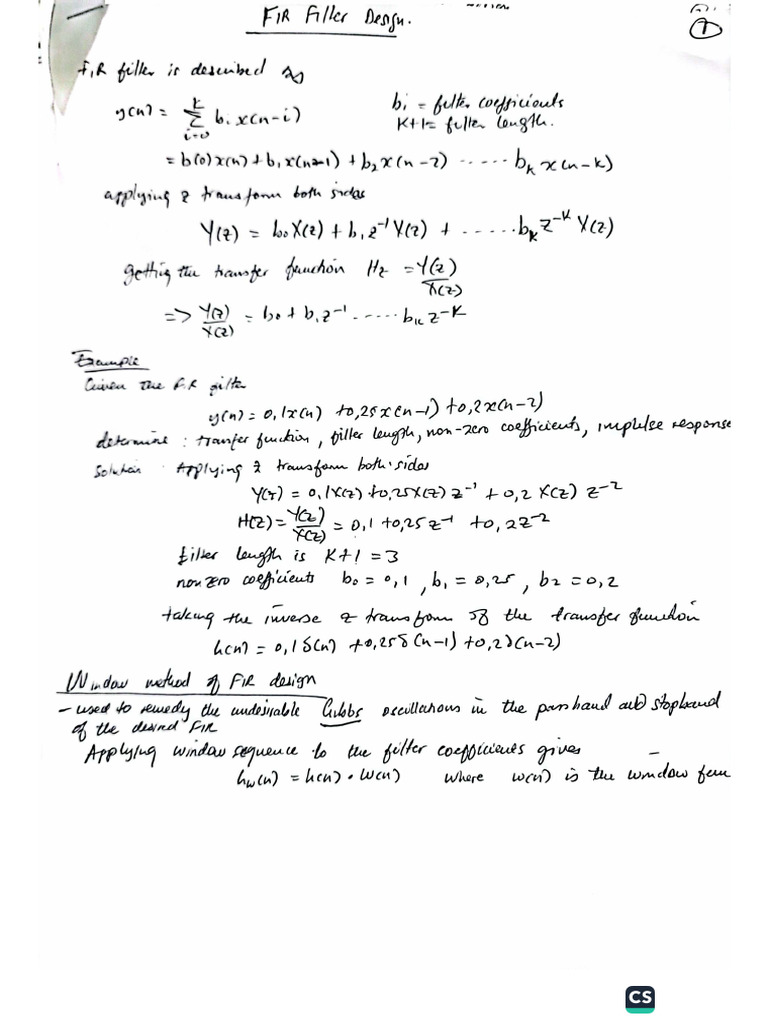 FIR Filter Design.
①
FIR filter is described as
y(n) = Σ_{i=0}^{k} bᵢ x(n-i)
bi = filter coefficients
K+1 = filter length.
= b(0)x(n) + b₁x(n-1) + b₂x(n-2) ...... b_k x(n-k)
applying z transform both sides
Y(z) = b₀X(z) + b₁z⁻¹Y(z) + ...... b_k z^{-K} X(z)
getting the transfer function Hz = Y(z)/X(z)
=> Y(z)/X(z) = b₀ + b₁z⁻¹ ...... b_k z^{-K}
Example
Given the FIR filter
y(n) = 0,1x(n) +0,25x(n-1) +0,2x(n-2)
determine : transfer function, filter length, non-zero coefficients, impulse response
Solution Applying z transform both sides
Y(z) = 0,1X(z) +0,25X(z) z⁻¹ + 0,2 X(z) z⁻²
H(z) = Y(z)/X(z) = 0,1 +0,25z⁻¹ +0,2z⁻²
filter length is K+1 = 3
nonzero coefficients b₀ = 0,1 , b₁ = 0,25 , b₂ = 0,2
taking the inverse z transform of the transfer function
h(n) = 0,1δ(n) +0,25δ(n-1) +0,2δ(n-2)
Window method of FIR design
- used to remedy the undesirable Gibbs oscillations in the passband and stopband
of the desired FIR
Applying window sequence to the filter coefficients gives
h_w(n) = h(n) · w(n) where w(n) is the window fun
CS